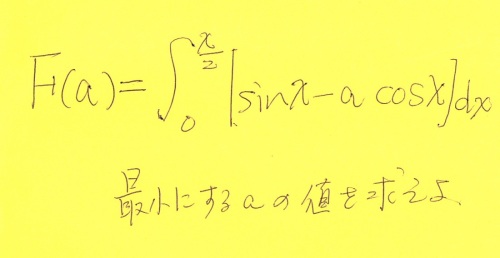 F(a)=∫₀^{x/2}|sinx-a cosx|dx
最小にするaの値を求えよ